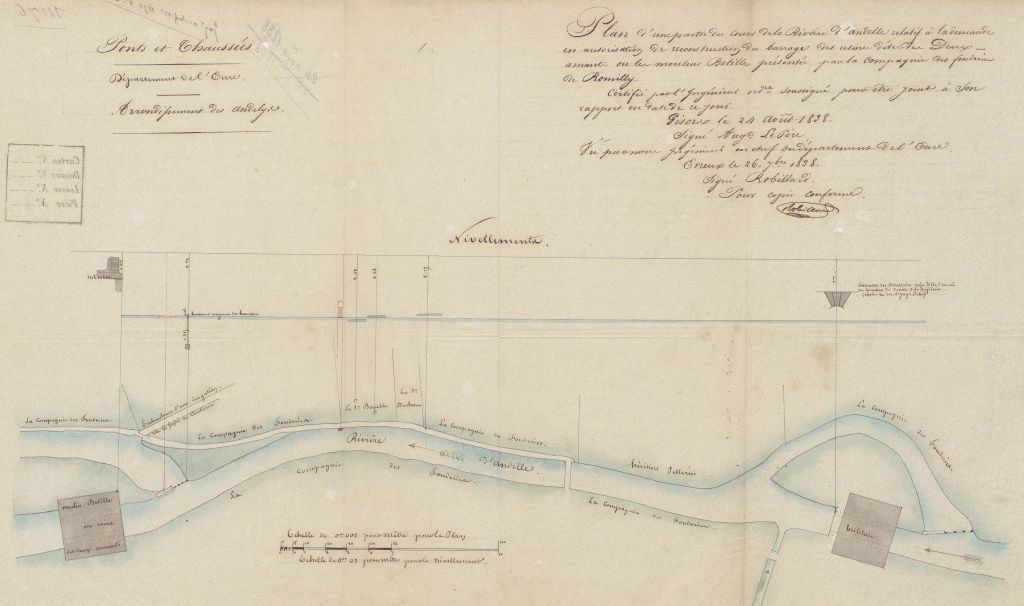 Ponts et Chaussées.
Département de l'Eure.
Arrondissement des andelys.
1.
Plan d'une partie du cours de la Rivière d'andelle relatif à la demande
en autorisation de reconstruction du barrage des usines dite des Deux-
amants ou les moulins Betille présenté par la Compagnie des fonderies
de Romilly.
Certifié par l'Ingénieur ordre soussigné pour être joint à son
rapport en date de ce jour.
Gisors le 24 août 1838.
Signé Augte Le Père
Vu par nous Ingénieur en chef du département de l'Eure
Evreux le 26 7bre 1838.
Signé Robillard
Pour copie conforme.
Robillard
Carton No.
Dossier No.
Liasse No.
Pièce No.
Nivellements.
La Compagnie des Fonderies
La Compagnie des Fonderies
Le Sr Bazille
Le Sr
La Compagnie des Fonderies.
La Compagnie des Fonderies
Rivière d'Andelle.
héritiers Pellerin
La Compagnie des Fonderies
La Compagnie des Fonderies.
moulin Betille
ou usine
des deux amants
tréfilerie
Echelle de 0m.001 pour mètre pour le Plan
Echelle de 0m.01 pour mètre pour le nivellement.